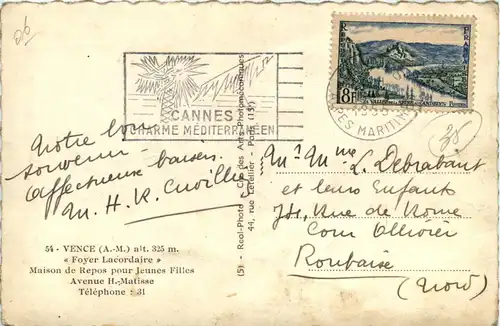 06
CANNES
CHARME MÉDITERRANÉEN
FRANCE
8F
VALLÉE DE LA SEINE
ALPES MARITIMES
35
Notre bon
souvenir
affectueux baisers
M. H. K.
Mr Mme L. Debrabant
et leurs Enfants
74, Rue de Rome
Cour Ollivier
Roubaix
(Nord)
54 - VENCE (A.-M.) alt. 325 m.
« Foyer Lacordaire »
Maison de Repos pour Jeunes Filles
Avenue H.-Matisse
Téléphone : 31
(S) - Real-Photo - des Arts Photomécaniques
44, rue Letellier - Paris (15)